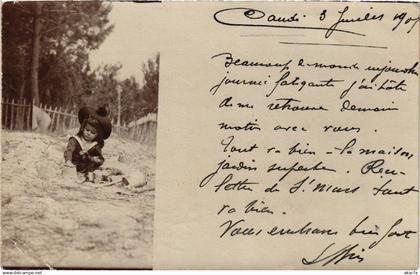 Caudi 3 Juillet 190
Beaucoup de monde aujourd'hui
journée fatigante j'ai hâte
de me retrouver demain
matin avec vous.
Tout va bien - la maison
jardin superbe.
de St Marc tout
va bien.
Vous embrasse bien fort